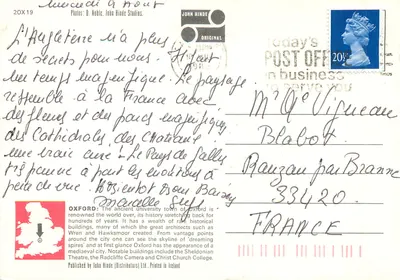 Mercredi 9 Aout
20X19
Photo: D. Noble, John Hinde Studios.
JOHN HINDE
ORIGINAL
Today's
POST OFF
in business
to serve you
20½
L'Angleterre n'a plus
de secrets pour nous.
un temps magnifique. Le paysage
ressemble à la France avec
des fleurs et des parcs magnifiques
des Cathédrales, des Chateaux
une vraie avec Le Pays de Galles
très pauvre à part les moutons à
perte de vue. Bons Baisers
Marcelle
Mr Me Vigneau
Blabot
Rauzan par Branne
33420
FRANCE
OXFORD: The ancient university town of Oxford is
renowned the world over, its history stretching back for
hundreds of years. It has a wealth of fine historical
buildings, many of which the great architects such as
Wren and Hawksmoor created. From vantage points
around the city one can see the skyline of 'dreaming
spires', and at first glance Oxford has the appearance of a
mediaeval city. Notable buildings include the Sheldonian
Theatre, the Radcliffe Camera and Christ Church College.
Published by John Hinde (Distributors) Ltd. Printed in Ireland